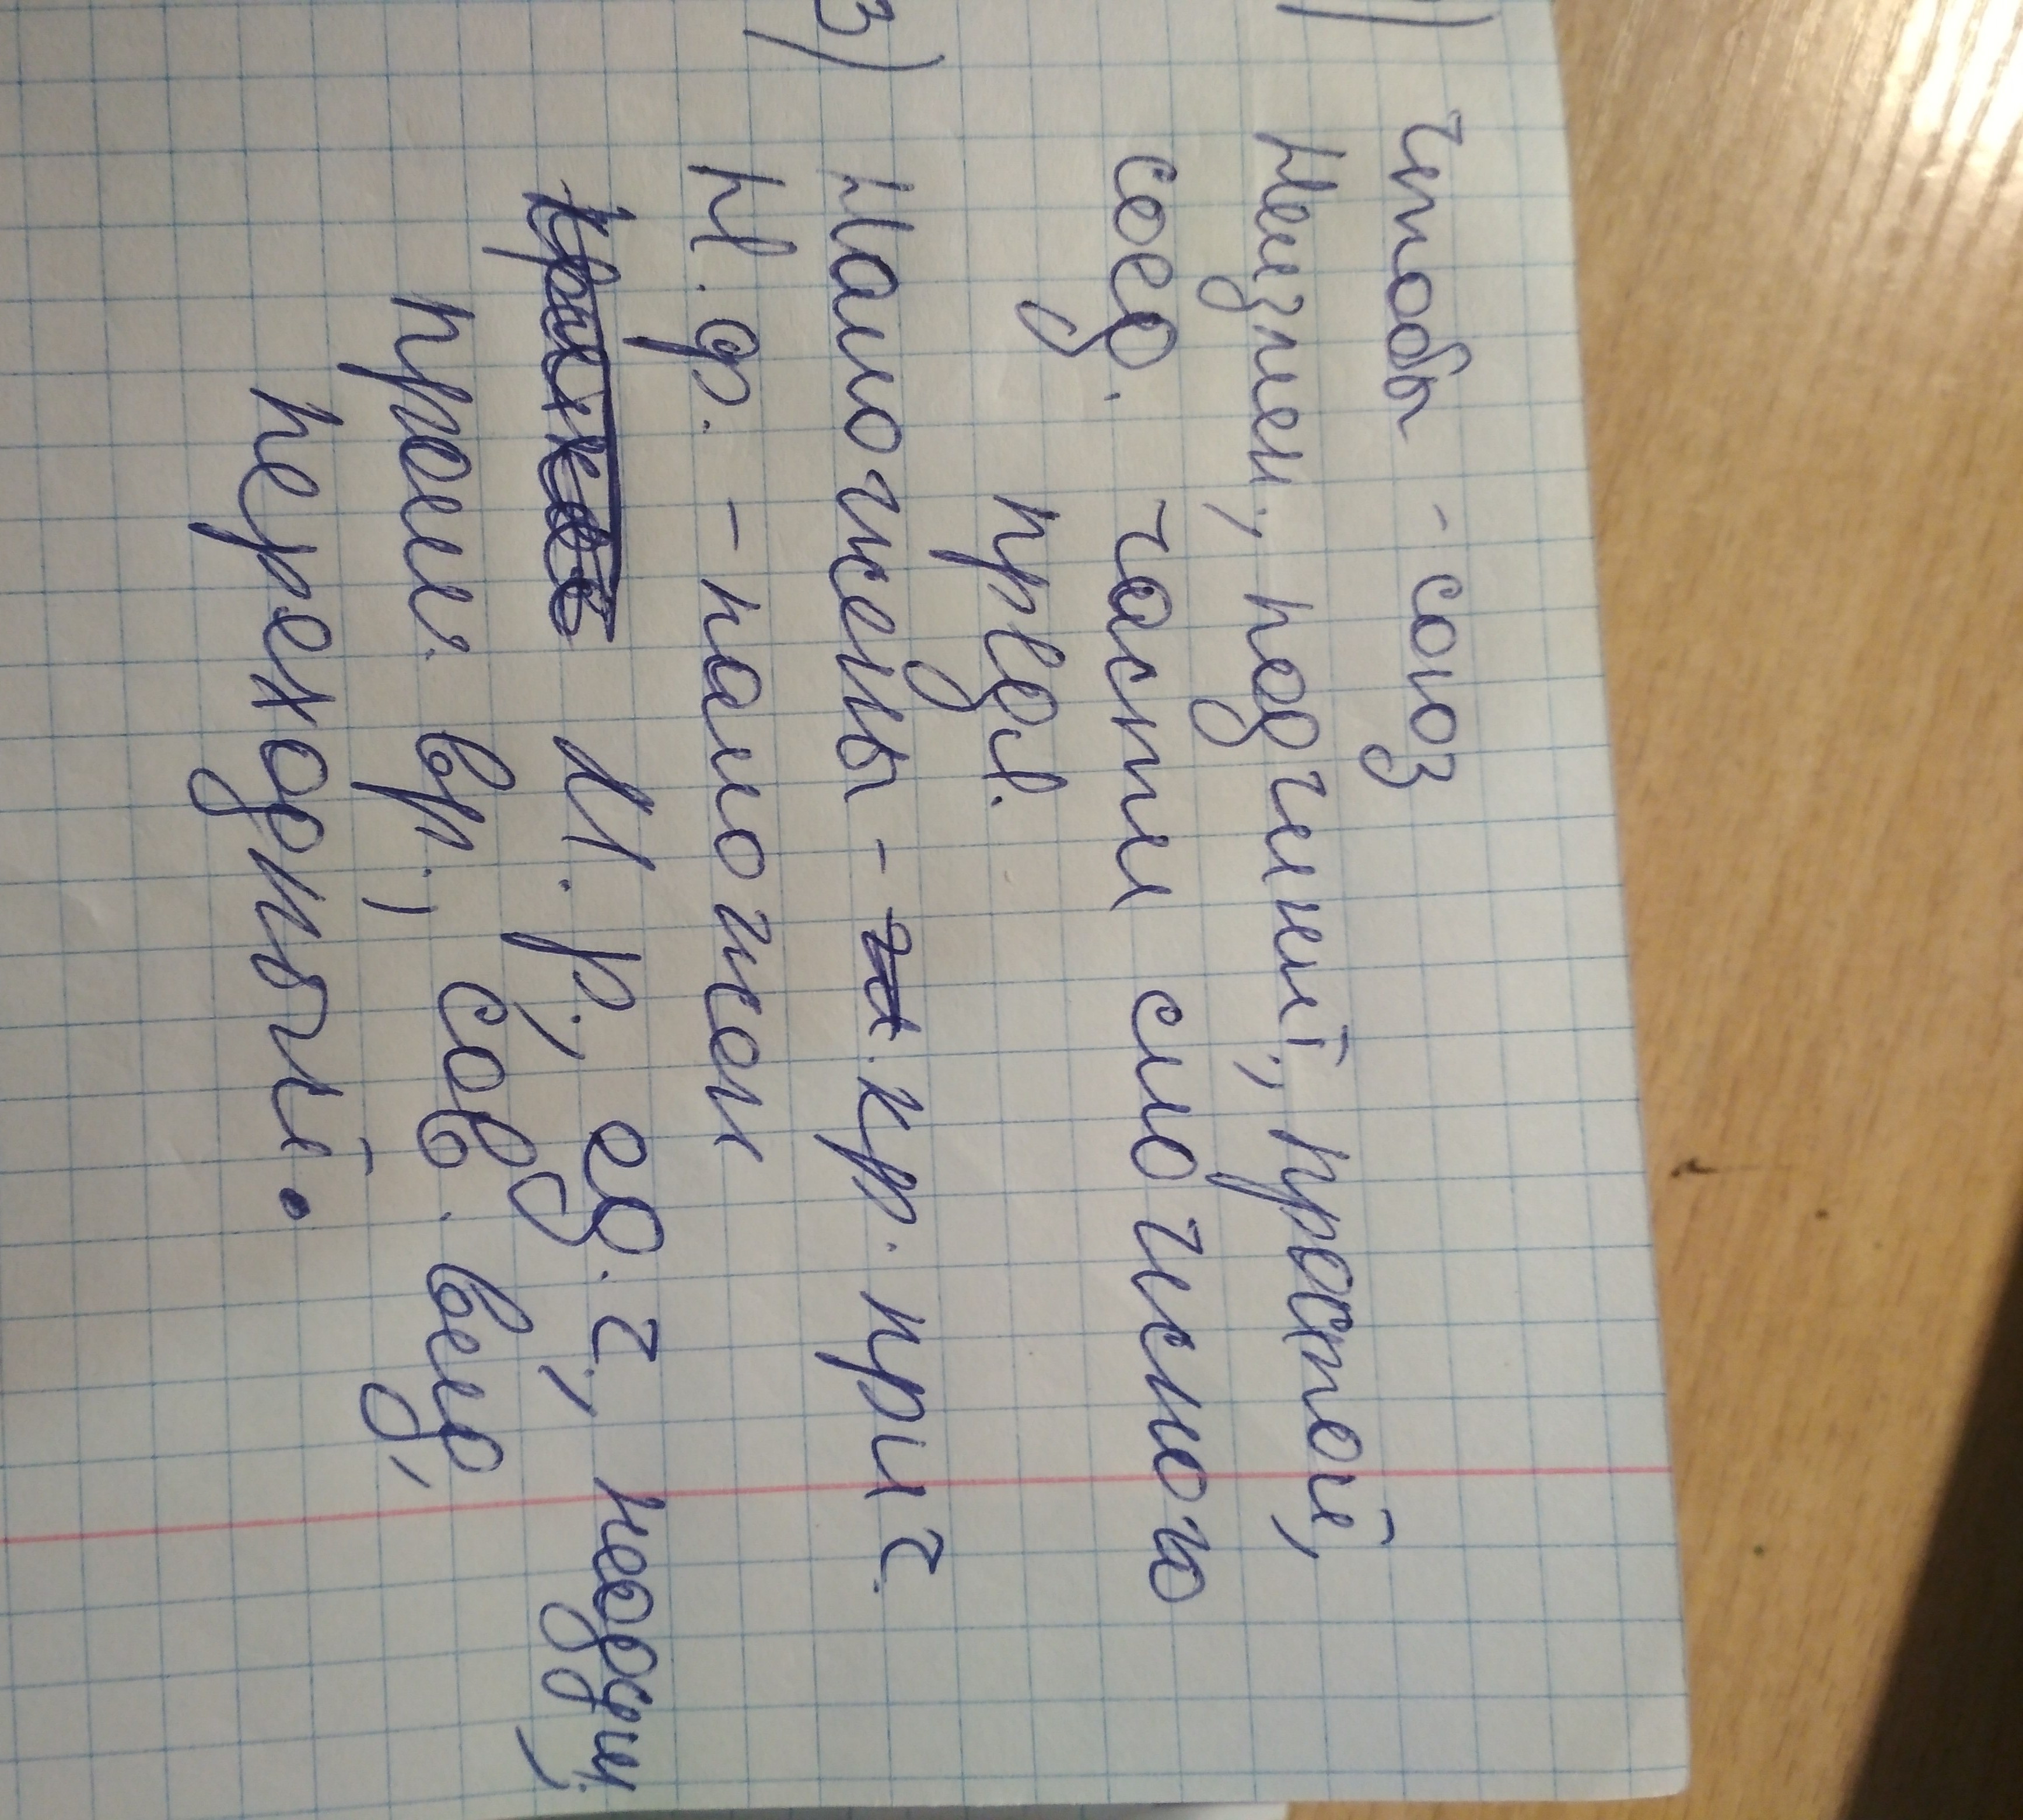 ) чтобы - союз
Неизмен., подчинит., простой,
соед. части сложного
предл.
3) Наложены - кр. прич.
Н. ф. - наложен
М. р., ед. ч., неодуш.,
прош. вр., сов. вид,
переходный.